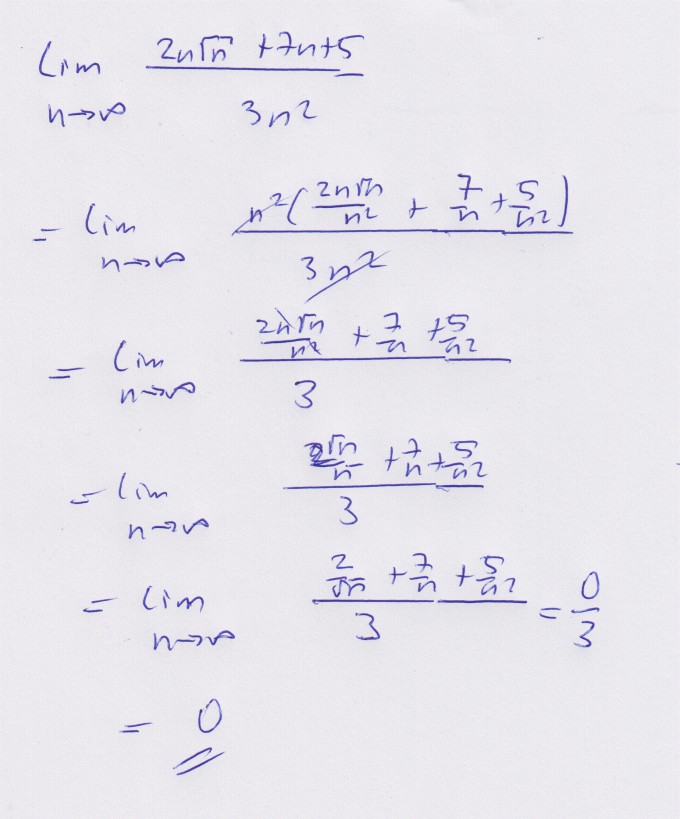 lim (2n√n + 7n + 5) / (3n²)
n→∞
= lim n²(2n√n/n² + 7/n + 5/n²) / (3n²)
n→∞
= lim (2n√n/n² + 7/n + 5/n²) / 3
n→∞
= lim (2√n/n + 7/n + 5/n²) / 3
n→∞
= lim (2/√n + 7/n + 5/n²) / 3 = 0/3
n→∞
= 0